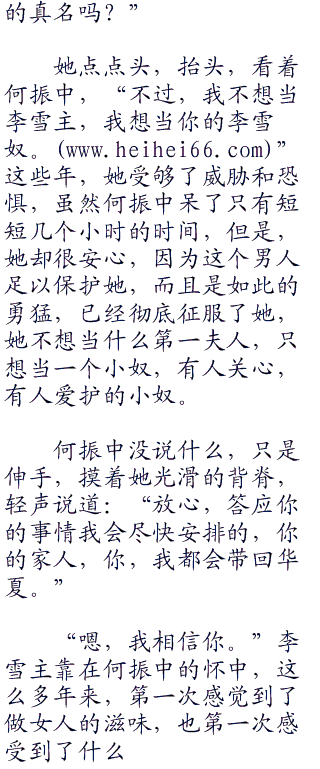 的真名吗？”
她点点头，抬头，看着
何振中，“不过，我不想当
李雪主，我想当你的李雪
奴。(www.heihei66.com)”
这些年，她受够了威胁和恐
惧，虽然何振中呆了只有短
短几个小时的时间，但是，
她却很安心，因为这个男人
足以保护她，而且是如此的
勇猛，已经彻底征服了她，
她不想当什么第一夫人，只
想当一个小奴，有人关心，
有人爱护的小奴。
何振中没说什么，只是
伸手，摸着她光滑的背脊，
轻声说道：“放心，答应你
的事情我会尽快安排的，你
的家人，你，我都会带回华
夏。”
“嗯，我相信你。”李
雪主靠在何振中的怀中，这
么多年来，第一次感觉到了
做女人的滋味，也第一次感
受到了什么